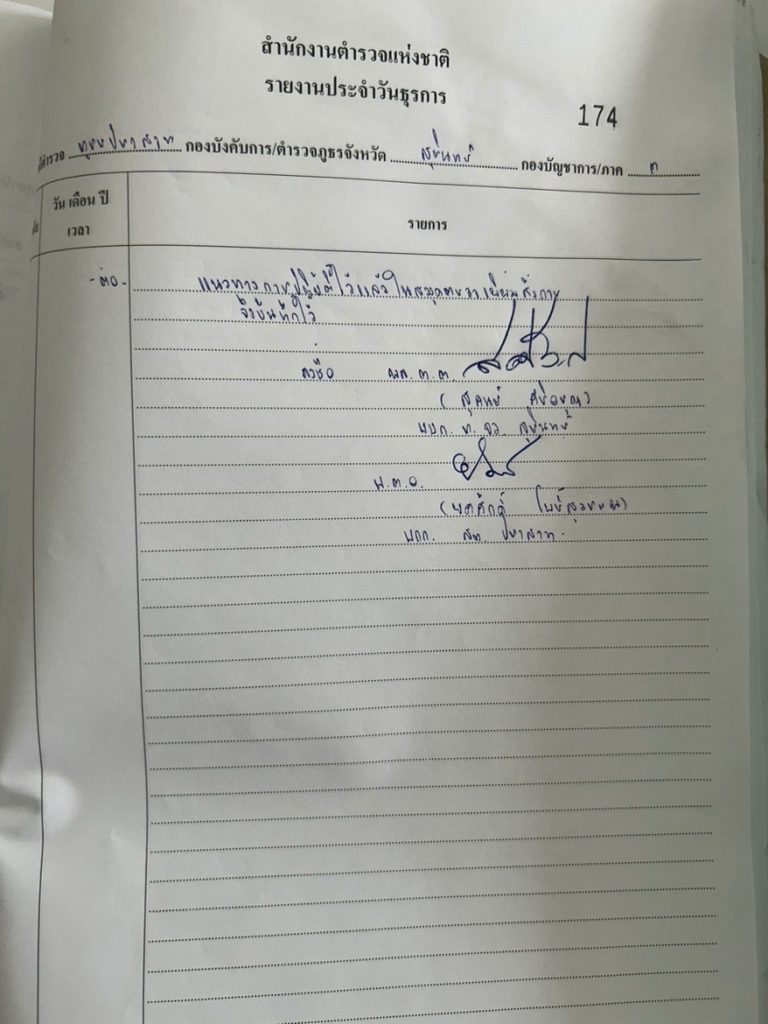 สำนักงานตำรวจแห่งชาติ
รายงานประจำวันธุรการ
174
ตำรวจ ปราสาท กองบังคับการ/ตำรวจภูธรจังหวัด สุรินทร์ กองบัญชาการ/ภาค ๓
วัน เดือน ปี
เวลา
รายการ
-ต่อ-
แนวทางการปฏิบัติไว้แล้วในสมุดตรวจเยี่ยมสั่งการ
จึงบันทึกไว้
ลงชื่อ พล.ต.ต.
( สุคนธ์
ผบก.ภ.จว.สุรินทร์
พ.ต.อ.
(ยศศักดิ์
ผกก. สภ. ปราสาท